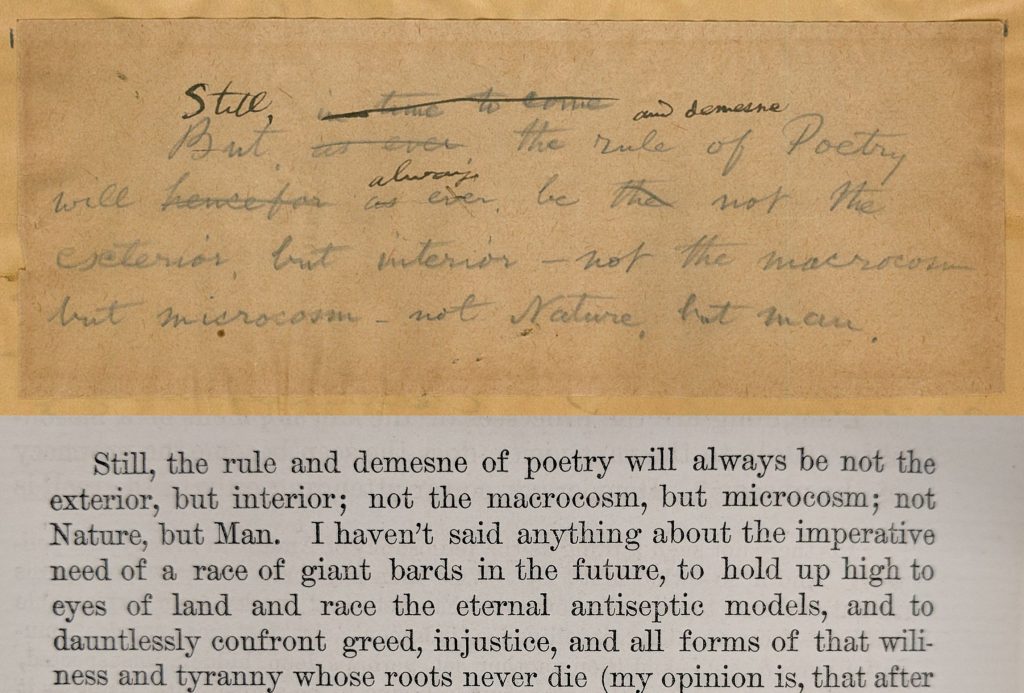 Still, in time to come and demesne
But, as ever the rule of Poetry
always
will hencefor as ever, be the not the
exterior, but interior – not the macrocosm
but microcosm – not Nature, but man.
Still, the rule and demesne of poetry will always be not the
exterior, but interior; not the macrocosm, but microcosm; not
Nature, but Man. I haven’t said anything about the imperative
need of a race of giant bards in the future, to hold up high to
eyes of land and race the eternal antiseptic models, and to
dauntlessly confront greed, injustice, and all forms of that wili-
ness and tyranny whose roots never die (my opinion is, that after